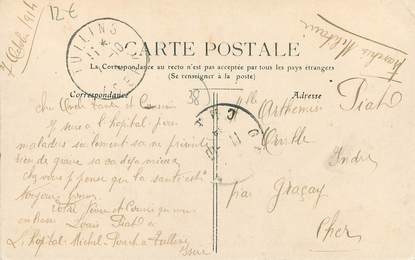 7 Octobre 1914
12€
TULLINS
11 -10
CARTE POSTALE
La Correspondance au recto n'est pas acceptée par tous les pays étrangers
(Se renseigner à la poste)
Franchise Militaire
Correspondance
38
Adresse
cher Oncle Tante et Cousin
je suis à l'hopital pour
maladie seulement sa ne présente
rien de grave sa va déja mieux
chez vous je pense que la santé est
toujours bonne
votre Neveu et Cousin qui vous
embrasse Louis Piat
L'hopital Michel-Perret à Tullins
Isère
Mlle Arthemise Piat
Orville
Indre
par Graçay
Cher